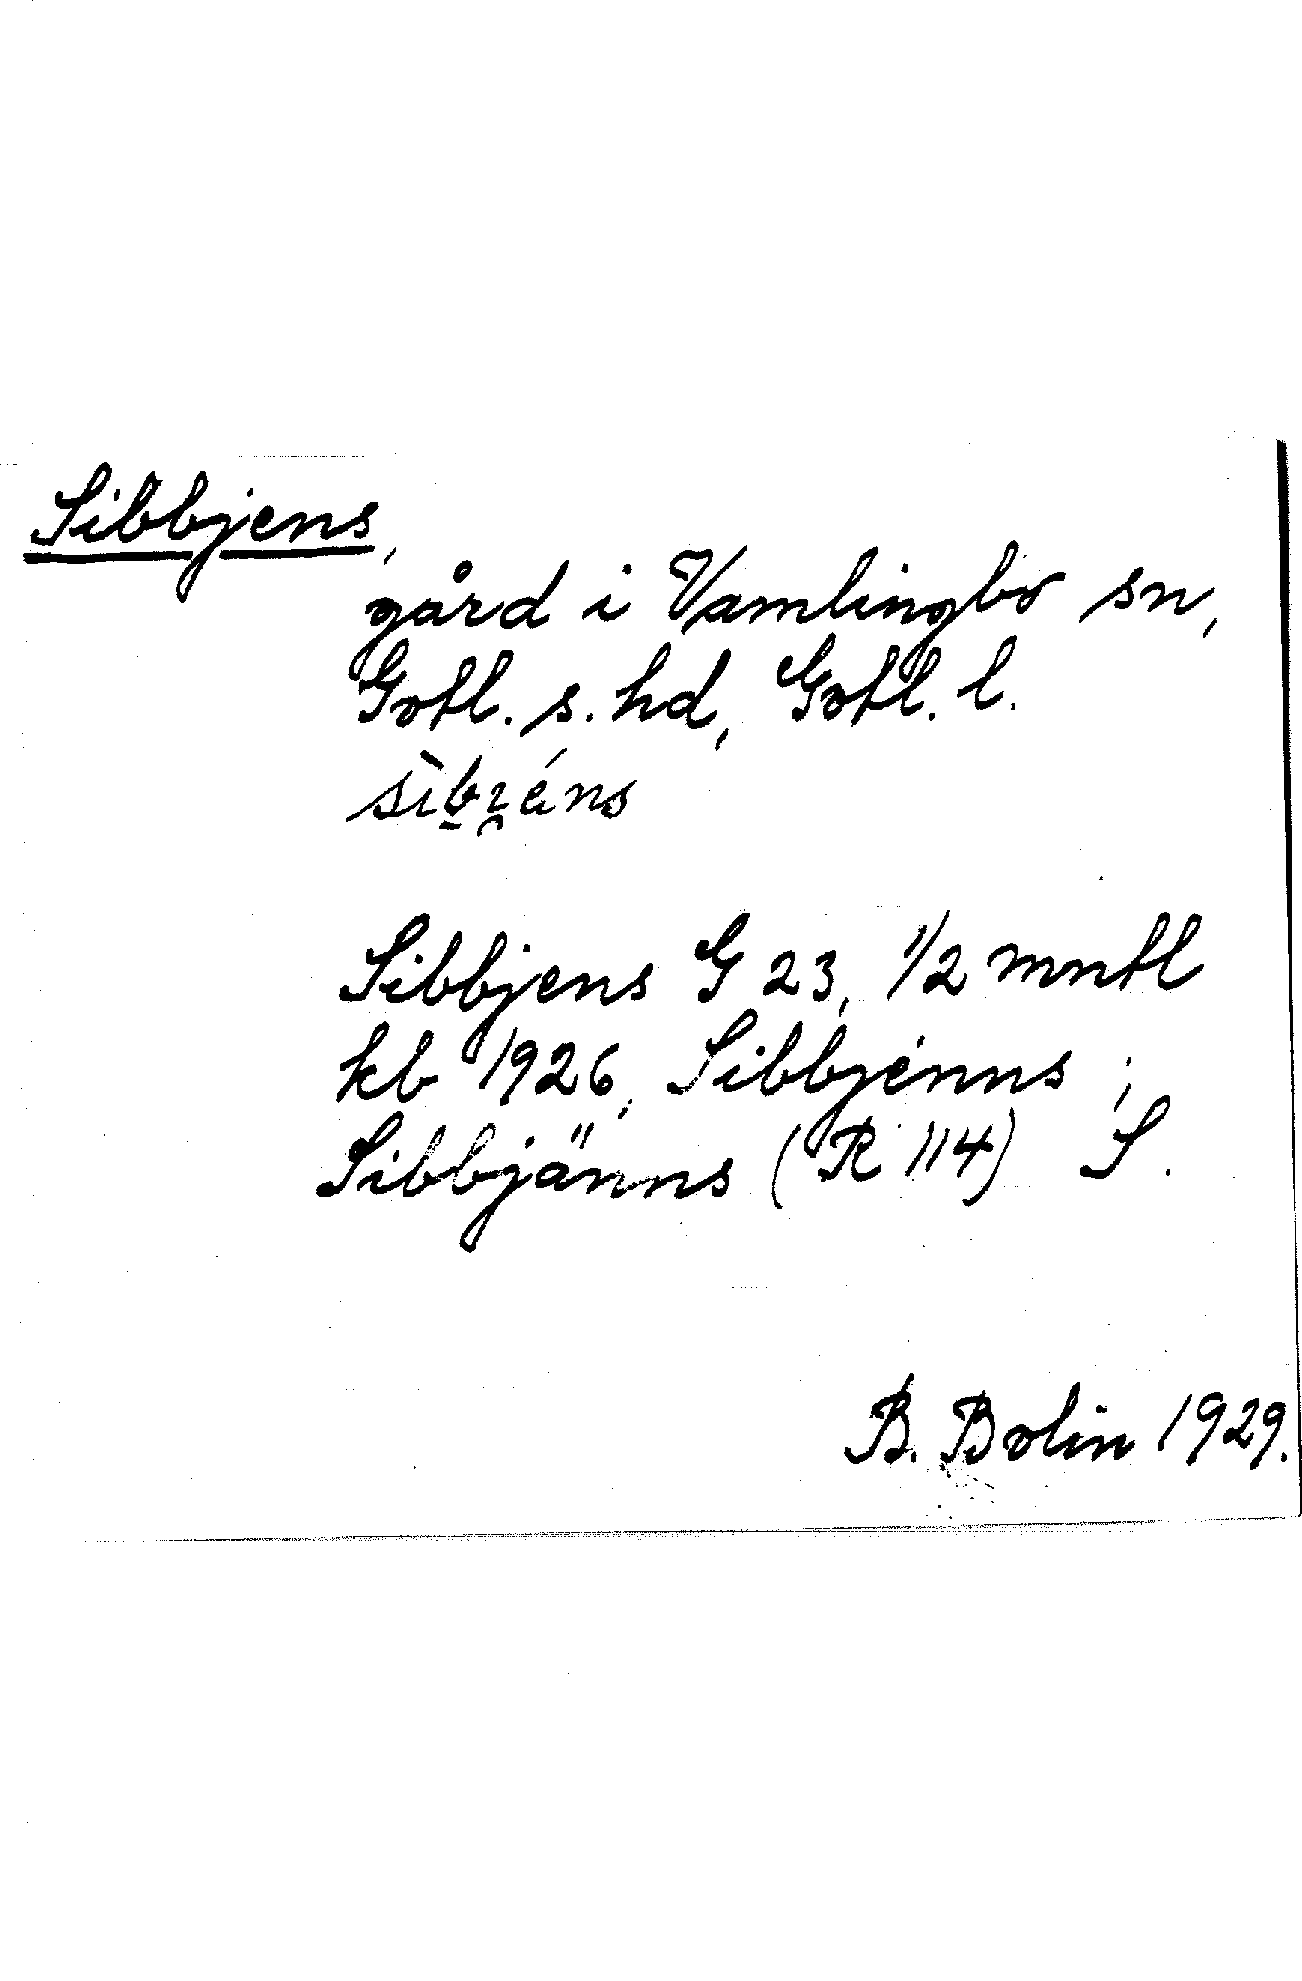 Sibbjens,
gård i Vamlingbo sn,
Gotl. s. hd, Gotl. l.
Sibbjens G 23, 1/2 mntl
kb 1926, Sibbjénns ;
Sibbjänns (R 114) S.
B. Bolin 1929.